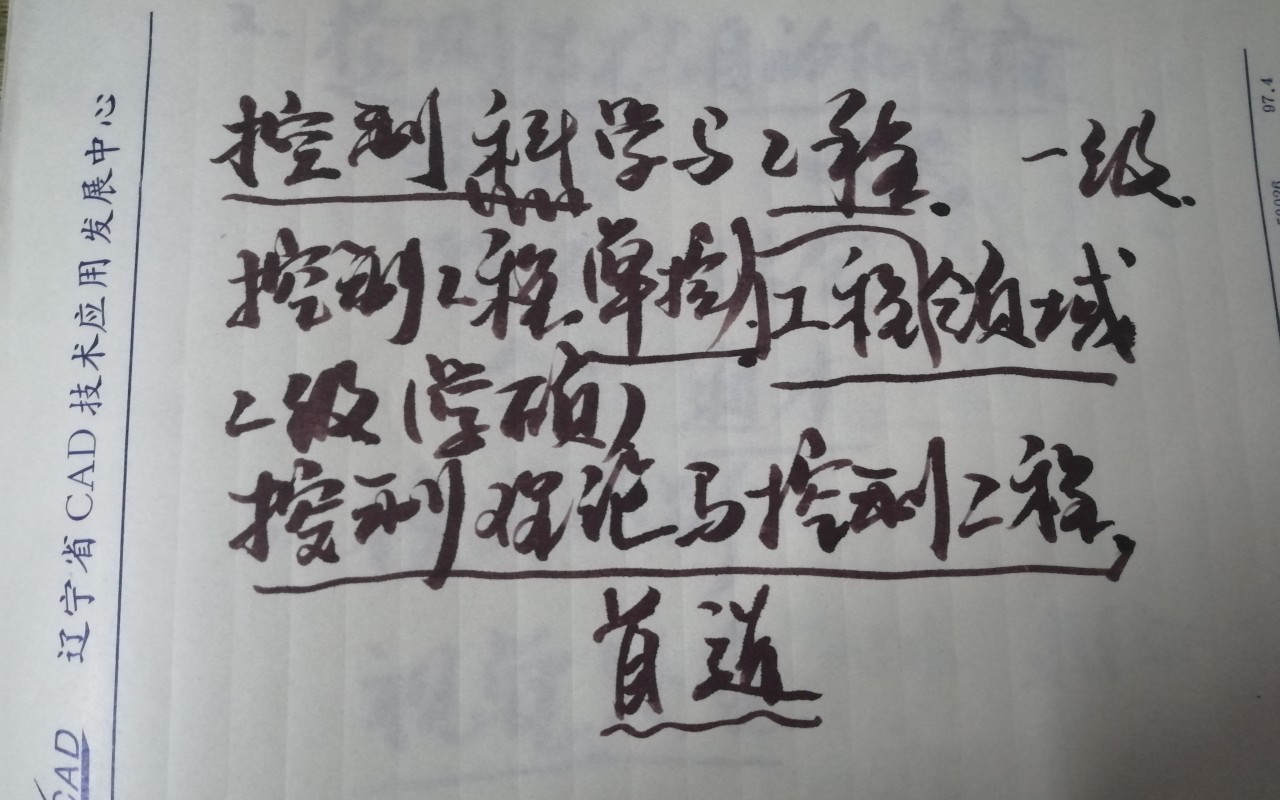 控制科学与工程. 一级.
控制工程.单控.工程领域
二级(学硕)
控制理论与控制工程,
首选
辽宁省CAD技术应用发展中心
CAD
97.4